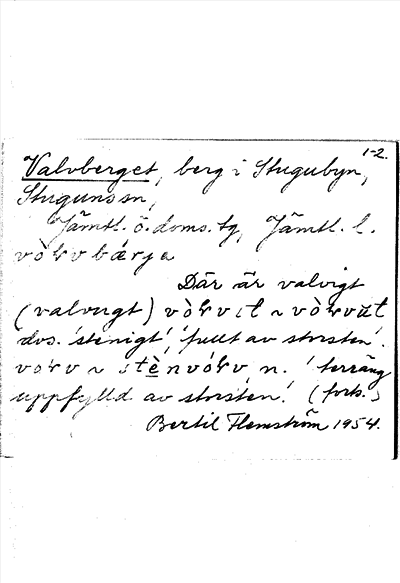 1-2.
Valvberget, berg i Stugubyn,
Stuguns sn,
Jämtl. ö. doms. tg, Jämtl. l.
vòrv bærja
Där är valvigt
(valvugt) vòrvıt ~ vòrvut
dvs. 'stenigt', 'fullt av storsten'.
vorv ~ stènvórv n. 'terräng
uppfylld av storsten.' (forts.)
Bertil Flemström 1954.